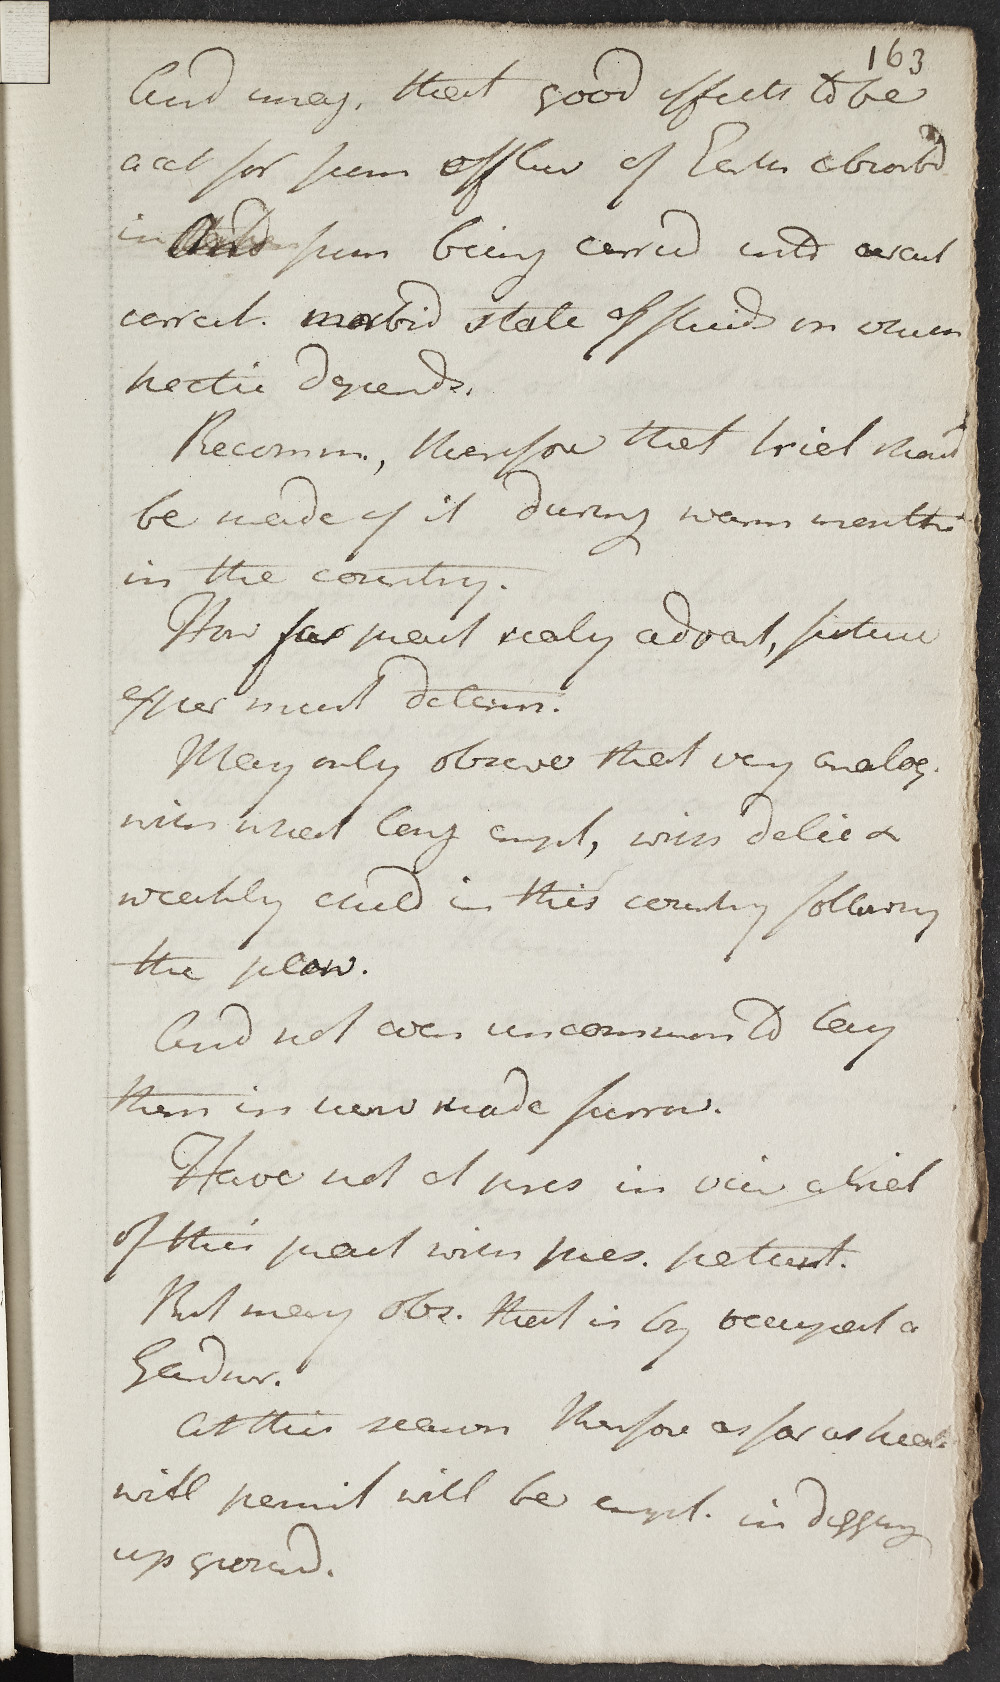 163
And imag. that good effects to be
acct for from effluv of Earth absorb'd
in And from being carried into
correct. morbid state of fluids on whom
hectic depends.
Recomm., therefore that trial shoud
be made of it during warm months
in the country.
How far pract realy advant, future
exper must determ.
May only observe that very analog.
with what long empl, with delic &
weakly child in this country following
the plow.
And not even uncommon to lay
them in new made furrow.
Have not at pres in view a trial
of this pract with pres. patient.
But may obs. that is by occupat a
Gardnr.
At this season therefore as far as heal
will permit will be empl. in digging
up ground.